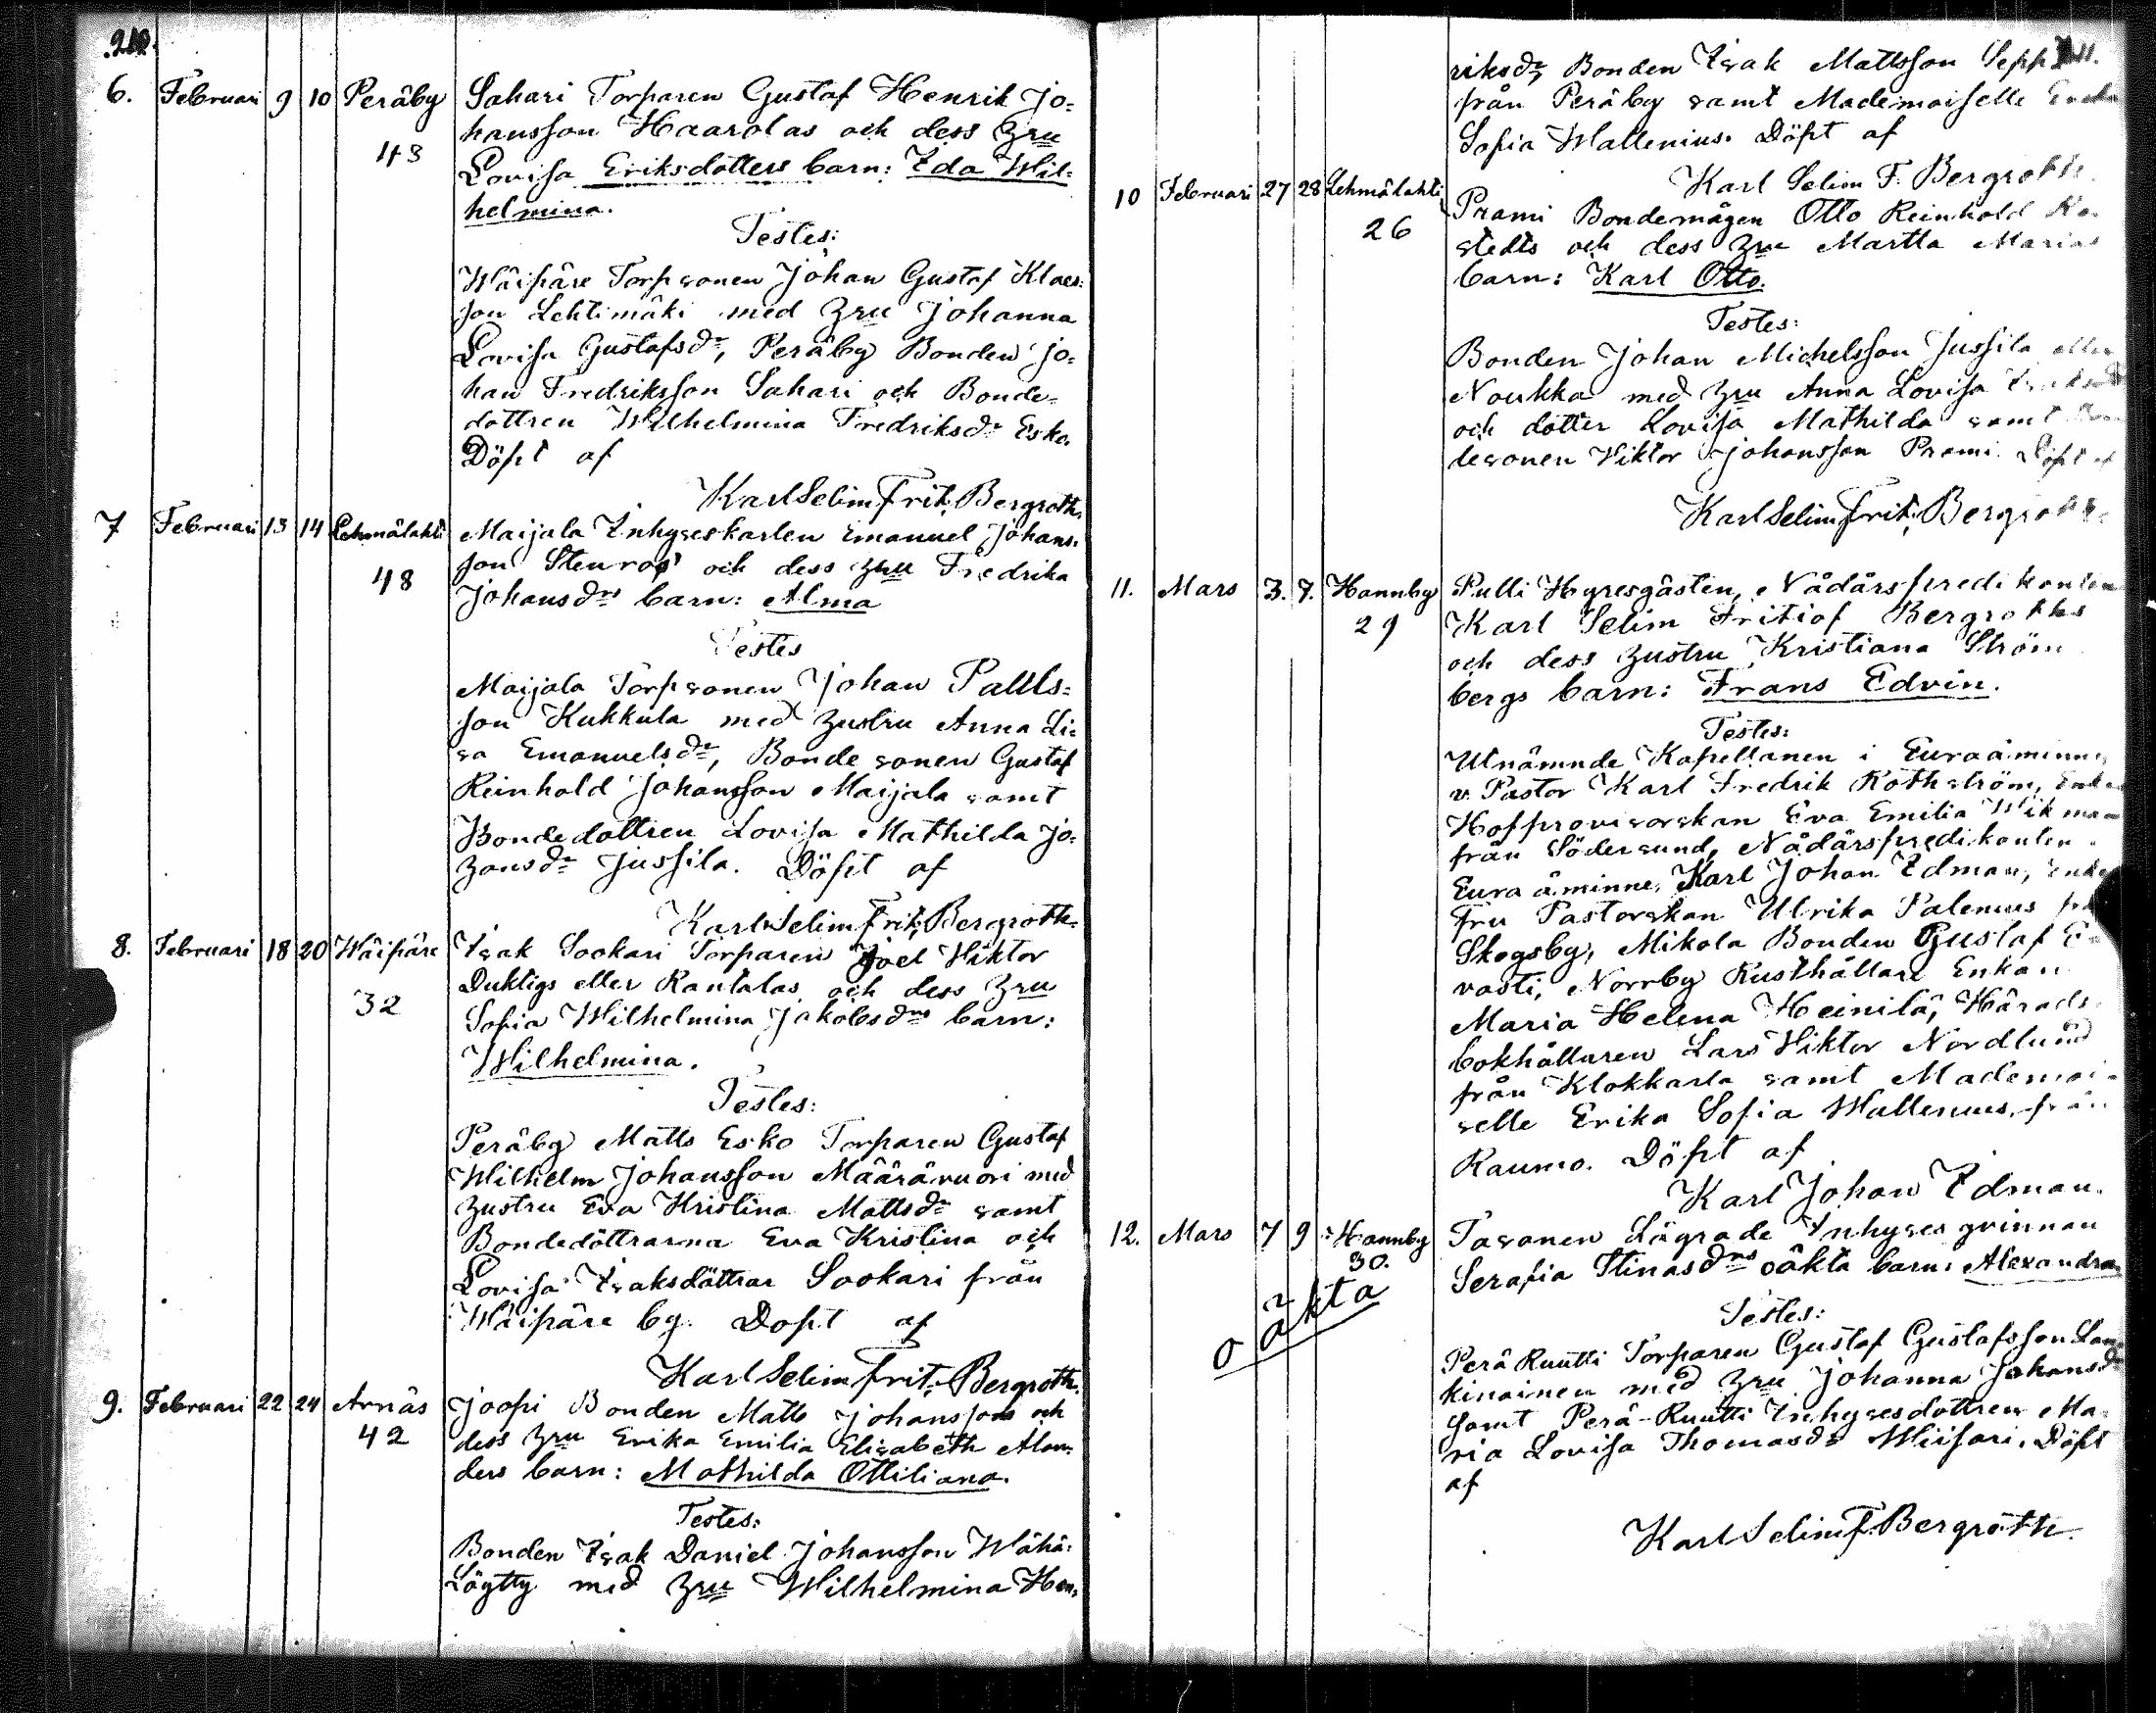 210.
6. Februari 9 10 Peräby Sahari Torparen Gustaf Henrik Jo=
hansson Haarolas och dess Hru
43
Lovisa Eriksdotters barn: Ida Wil=
helmina.
Testes:
Wäipäre Torpsonen Johan Gustaf Klaes=
son Lehtimäki med Hru Johanna
Lovisa Gustafsdr, Peräby Bonden Jo=
han Fredriksson Sahari och Bonde=
dottren Wilhelmina Fredriksdr Esko.
Döpt af
Karl Selim Frit. Bergroth.
7 Februari 13 14 Lehmälahti Maijala Inhyseskarlen Emanuel Johans=
son Stenros och dess Hru Fredrika
48
Johansdrs barn: Alma
Testes
Maijala Torpsonen Johan Pauls=
son Kukkula med Hustru Anna Li=
sa Emanuelsdr, Bondesonen Gustaf
Reinhold Johansson Maijala samt
Bondedottren Lovisa Mathilda Jo=
hansdr Jussila. Döpt af
Karl Selim Frit. Bergroth.
8. Februari 18 20 Wäipäre Isak Sookari Torparen Joel Wiktor
Duktigs eller Rantalas och dess Hru
32
Sofia Wilhelmina Jakobsdrs barn:
Wilhelmina.
Testes:
Peräby Matts Esko Torparen Gustaf
Wilhelm Johansson Määrävuori med
Hustru Eva Kristina Mattsdr samt
Bondedöttrarna Eva Kristina och
Lovisa Isaksdöttrar Sookari från
Wäipäre by. Döpt af
Karl Selim Frit. Bergroth.
9. Februari 22 24 Arnäs Joopi Bonden Matts Johanssons och
42
dess Hru Erika Emilia Elisabeth Alan=
ders barn: Mathilda Ottiliana.
Testes:
Bonden Isak Daniel Johansson Wähä=
Löytty med Hru Wilhelmina Hen=
riksdr, Bonden Isak Mattsson
från Peräby samt Mademoiselle
Sofia Wallenius. Döpt af
Karl Selim F. Bergroth.
10 Februari 27 28 Lehmälahti Prami Bondemågen Otto Reinhold
26
stedts och dess Hru Martta Marias
barn: Karl Otto.
Testes:
Bonden Johan Michelsson Jussila eller
Noukka med Hru Anna Lovisa
och dotter Lovisa Mathilda samt
desonen Viktor Johansson Prami. Döpt af
Karl Selim Frit. Bergroth.
11. Mars 3. 7. Hannby Pulli Hyresgästen, Nådårspredikanten
29
Karl Selim Fritiof Bergroths
och dess Hustru Kristiana Ström
bergs barn: Frans Edvin.
Testes:
Utnämnde Kapellanen i Euraåminne,
v. Pastor Karl Fredrik Rothström,
Hofprovisorskan Eva Emilia Wikman
från Södersund, Nådårspredikanten i
Euraåminne, Karl Johan Idman,
Fru Pastorskan Ulrika Palenius
Skogsby, Mikola Bonden Gustaf
vasti, Norrby Rusthållare Enkan
Maria Helena Heinilä, Härads=
bokhållaren Lars Viktor Nordlund
från Klokkarla samt Mademoi=
selle Erika Sofia Wallenius, från
Raumo. Döpt af
Karl Johan Idman.
12. Mars 7 9 Hannby Tasanen Lägrade Inhyses qvinnan
30.
Serafia Stinasdrs oäkta barn: Alexandra
oäkta
Testes:
Perä Ruutti Torparen Gustaf Gustafsson
kinainen med Hru Johanna Johansdr
samt Perä-Ruutti Inhysesdottren Ma=
ria Lovisa Thomasdr Wiisari. Döpt
af
Karl Selim F. Bergroth.